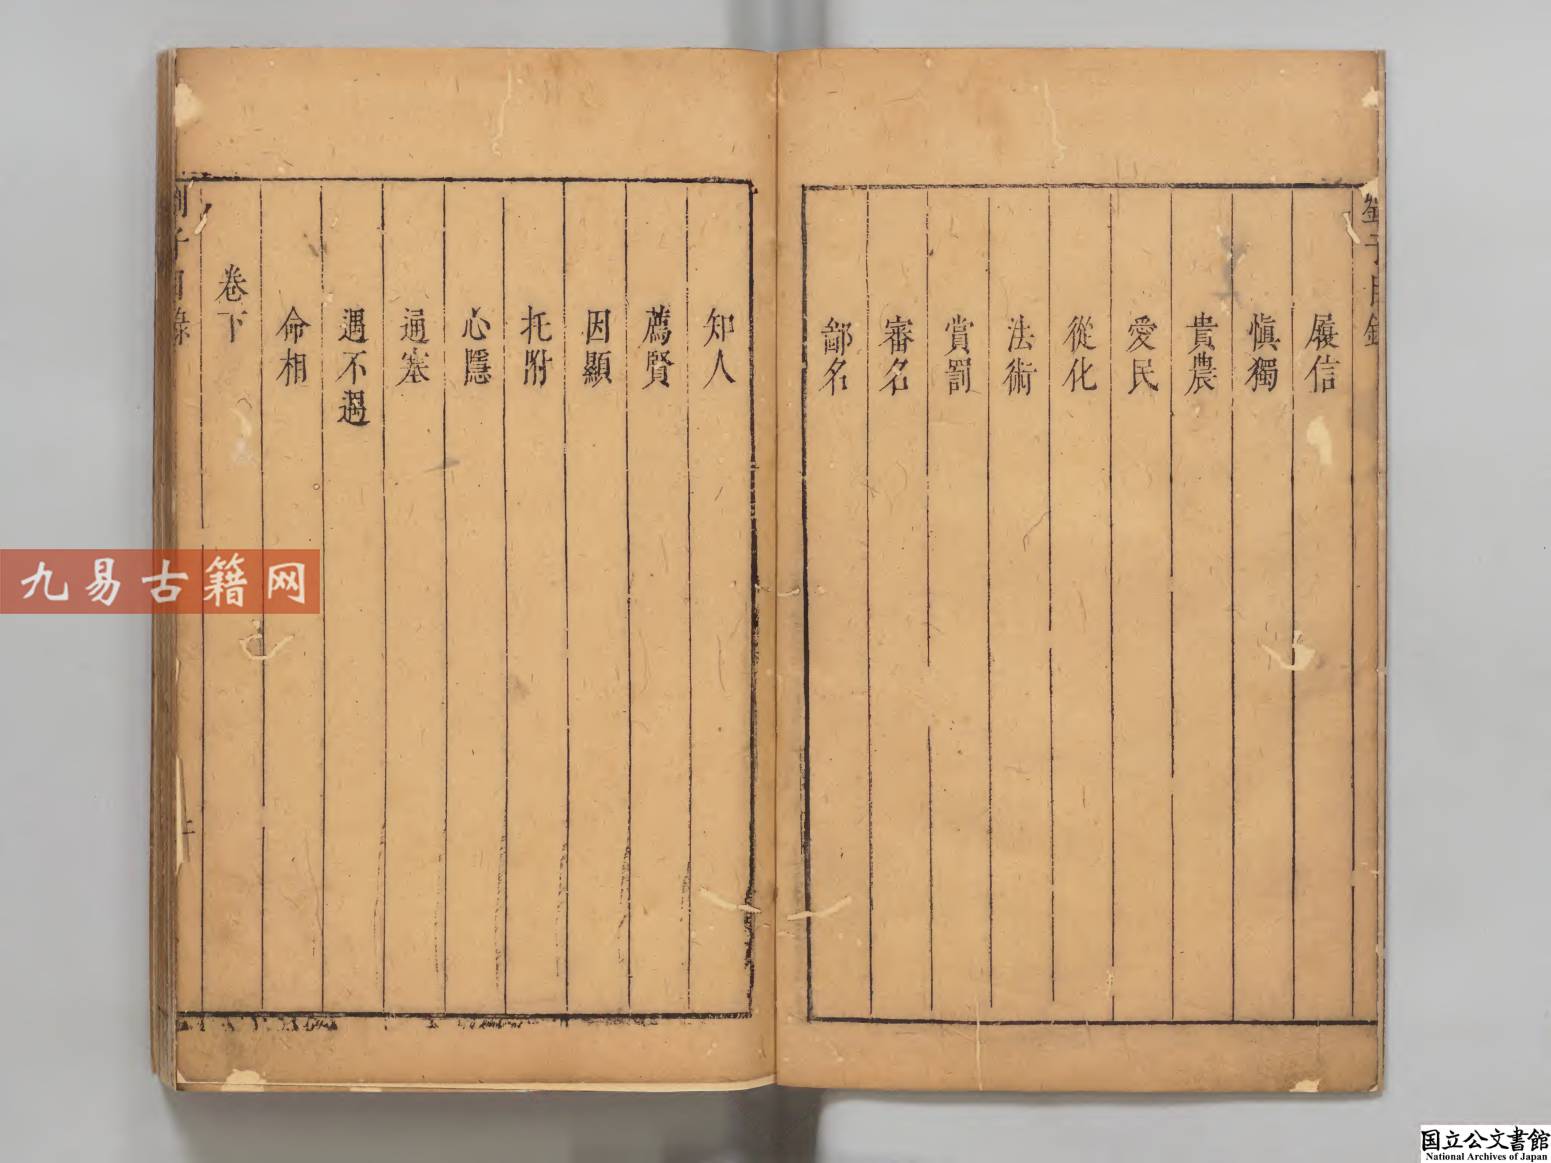 履信
慎獨
貴農
愛民
從化
法術
賞罰
審名
鄙名
知人
薦賢
因顯
托附
心隱
通塞
遇不遇
命相
卷下
九易古籍网
国立公文書館
National Archives of Japan